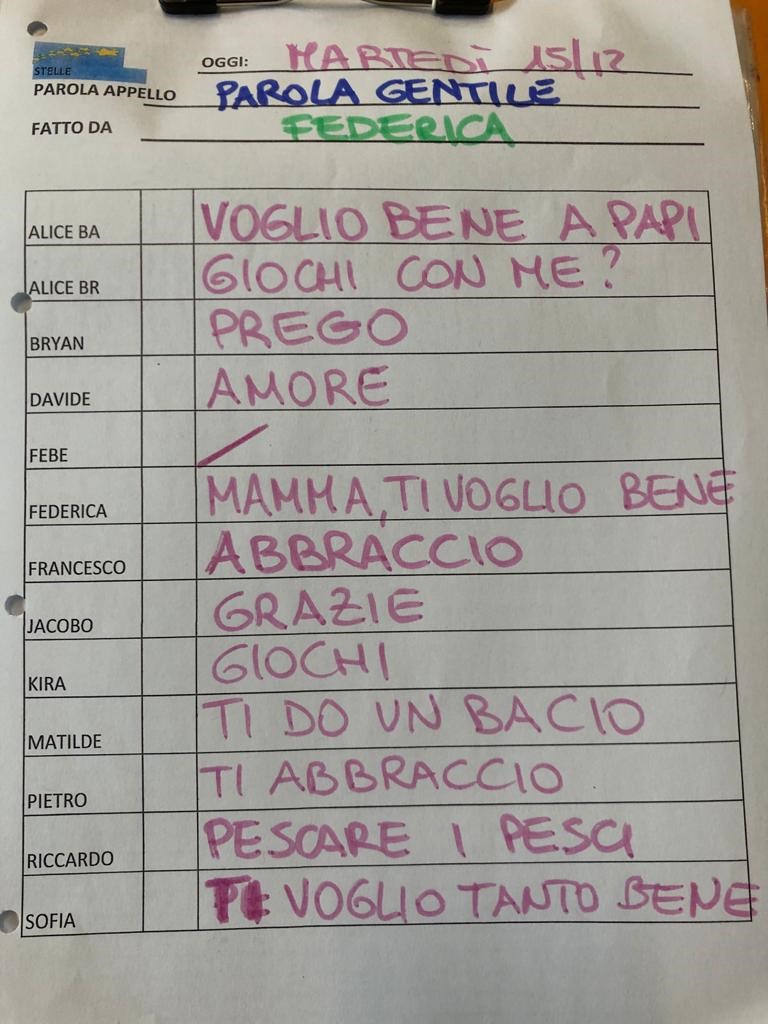 OGGI: MARTEDÌ 15/12
STELLE
PAROLA APPELLO PAROLA GENTILE
FATTO DA FEDERICA
ALICE BA VOGLIO BENE A PAPI
ALICE BR GIOCHI CON ME?
BRYAN PREGO
DAVIDE AMORE
FEBE /
FEDERICA MAMMA, TI VOGLIO BENE
FRANCESCO ABBRACCIO
JACOBO GRAZIE
KIRA GIOCHI
MATILDE TI DO UN BACIO
PIETRO TI ABBRACCIO
RICCARDO PESCARE I PESCI
SOFIA TI VOGLIO TANTO BENE